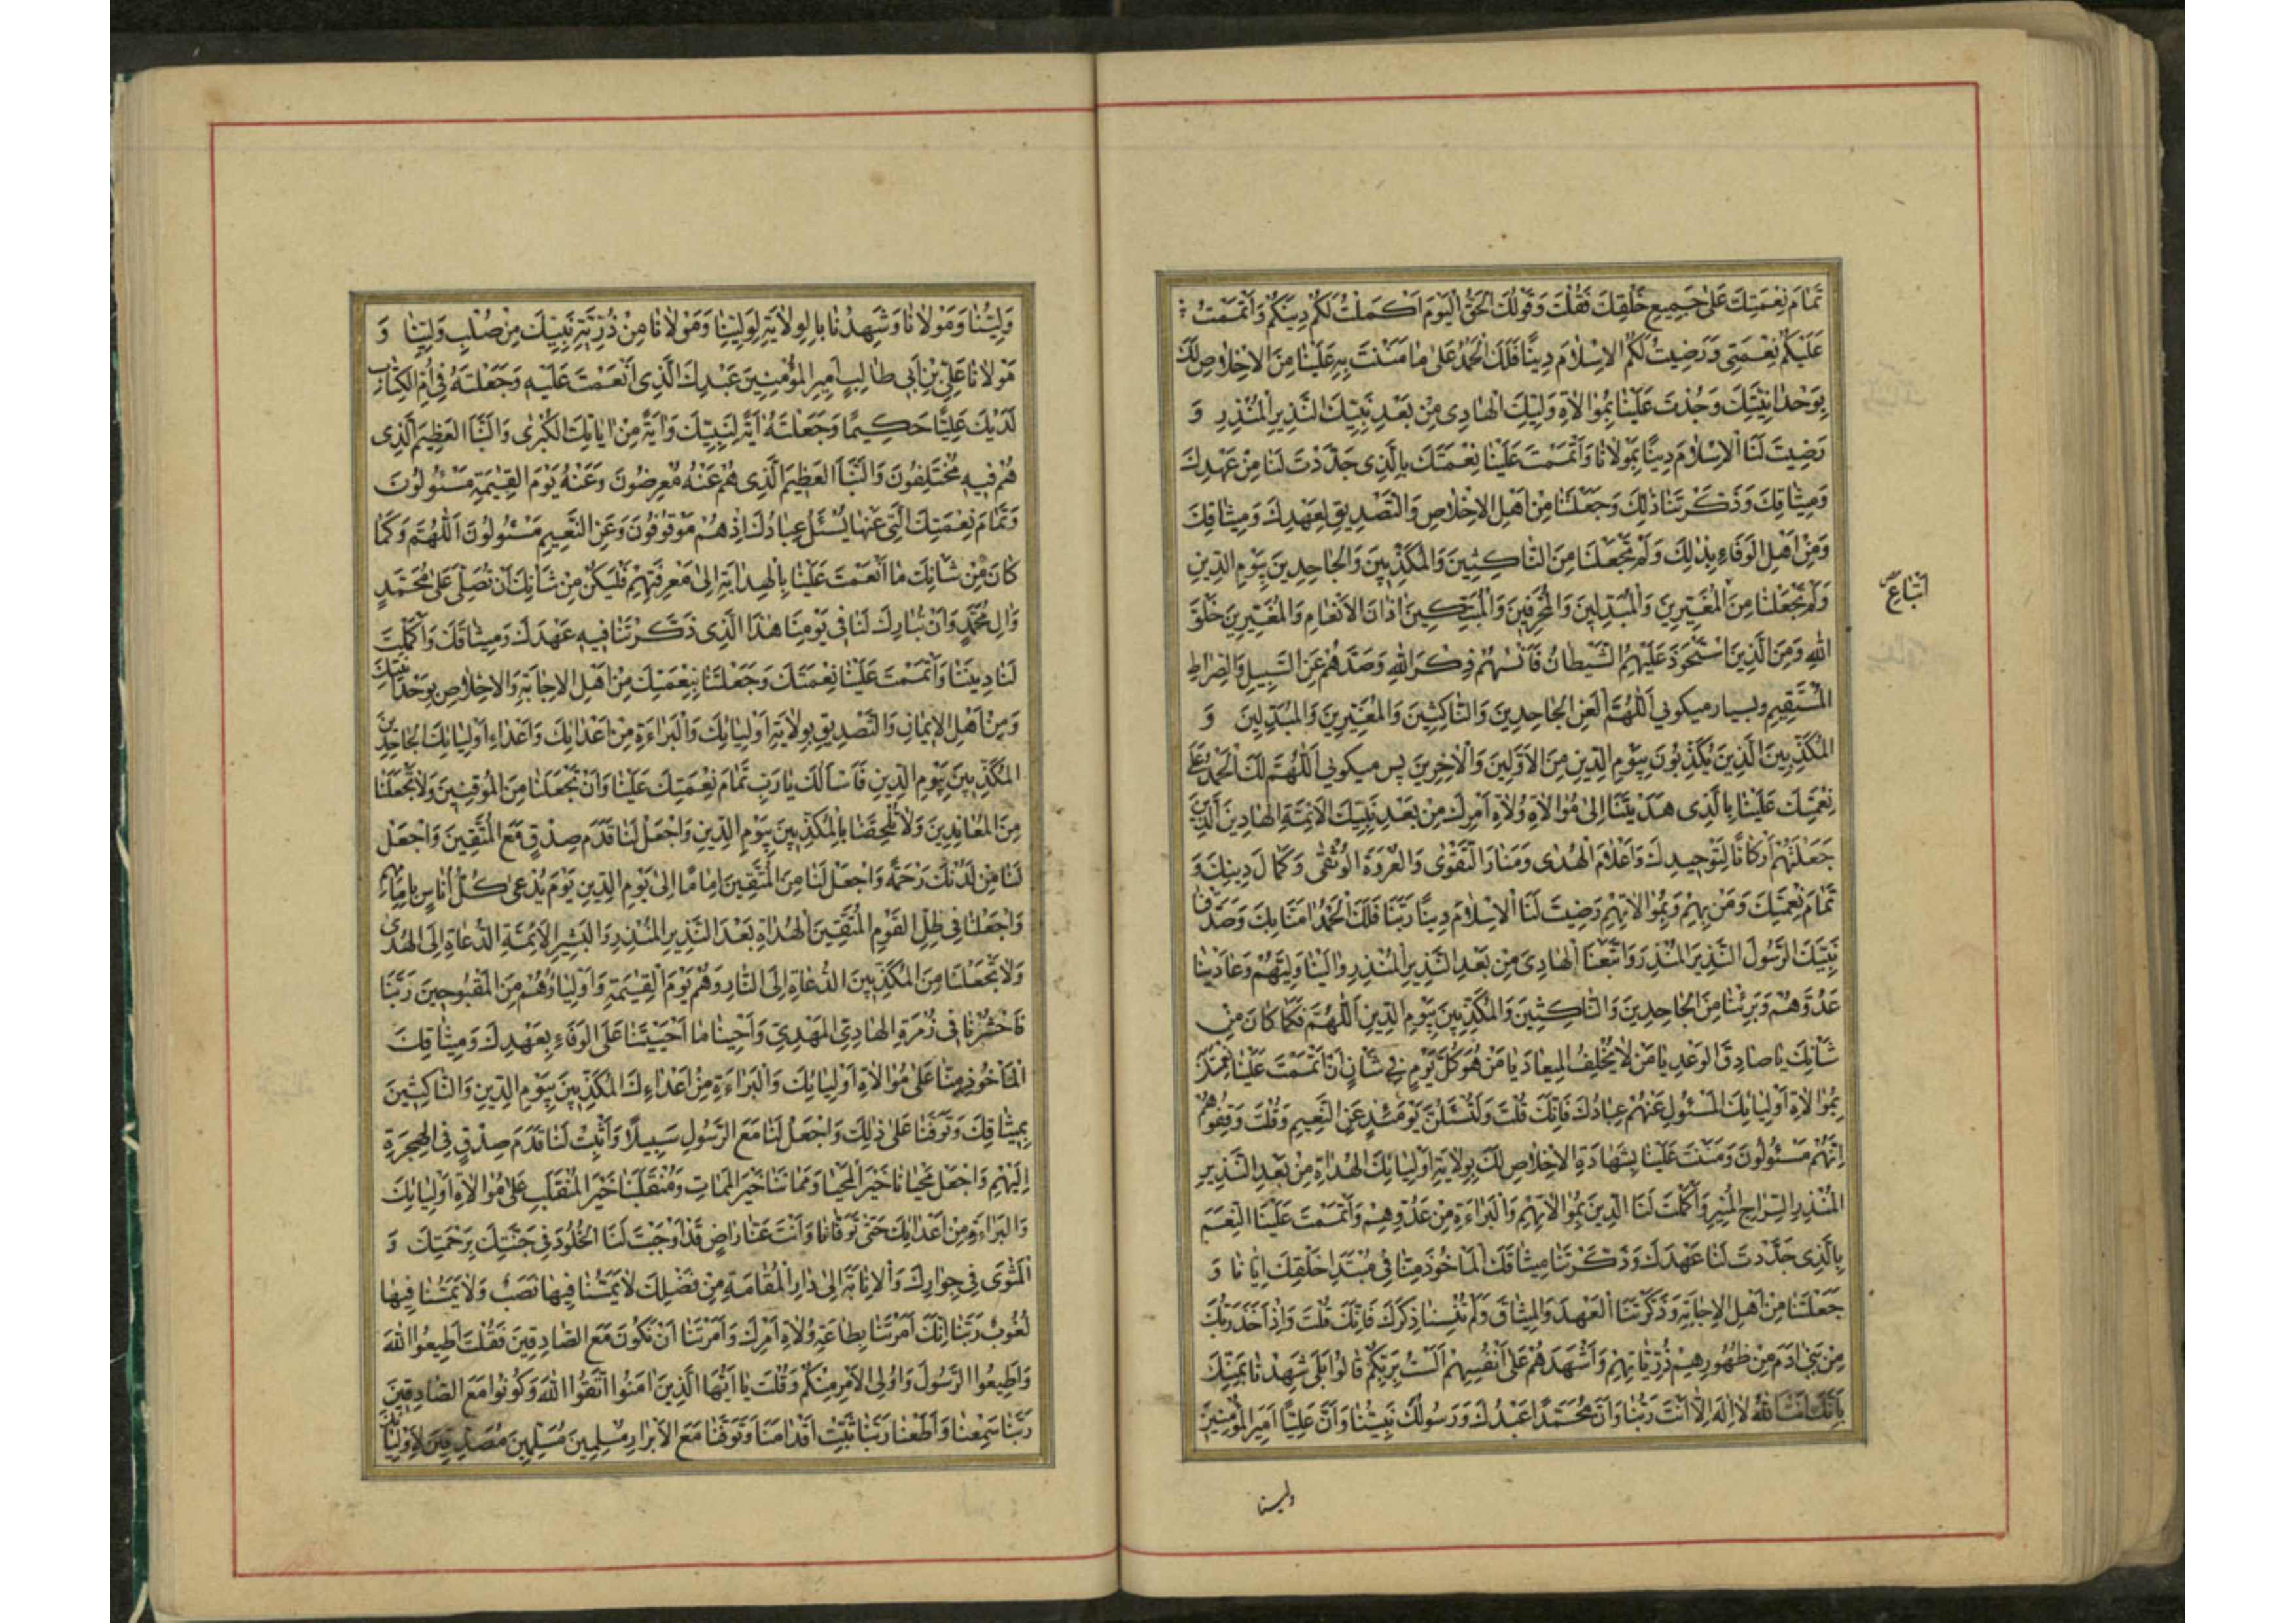 تَمَامَ نِعْمَتِكَ عَلٰى جَمِيعِ خَلْقِكَ فَقُلْتَ وَقَوْلُكَ الْحَقُّ اَلْيَوْمَ اَكْمَلْتُ لَكُمْ دِينَكُمْ وَاَتْمَمْتُ
عَلَيْكُمْ نِعْمَتِى وَرَضِيتُ لَكُمُ الْاِسْلٰامَ دِينًا فَلَكَ الْحَمْدُ عَلٰى مٰا مَنَنْتَ بِهِ عَلَيْنٰا مِنَ الْاِخْلٰاصِ لَكَ
بِوَحْدٰانِيَّتِكَ وَجُدْتَ عَلَيْنٰا بِمُوٰالٰاةِ وَلِيِّكَ الْهٰادِى مِنْ بَعْدِ نَبِيِّكَ النَّذِيرِ الْمُنْذِرِ وَ
رَضِيتَ لَنَا الْاِسْلٰامَ دِينًا بِمَوْلٰانٰا وَاَتْمَمْتَ عَلَيْنٰا نِعْمَتَكَ بِالَّذِى جَدَّدْتَ لَنٰا مِنْ عَهْدِكَ
وَمِيثٰاقِكَ وَذَكَّرْتَنٰا ذٰلِكَ وَجَعَلْتَنٰا مِنْ اَهْلِ الْاِخْلٰاصِ وَالتَّصْدِيقِ لِعَهْدِكَ وَمِيثٰاقِكَ
وَمِنْ اَهْلِ الْوَفٰاءِ بِذٰلِكَ وَلَمْ تَجْعَلْنَا مِنَ النّٰاكِثِينَ وَالْمُكَذِّبِينَ وَالْجٰاحِدِينَ بِيَوْمِ الدِّينِ
وَلَمْ تَجْعَلْنٰا مِنَ الْمُغَيِّرِينَ وَالْمُبَدِّلِينَ وَالْمُحَرِّفِينَ وَالْمُبَتِّكِينَ اٰذٰانَ الْاَنْعٰامِ وَالْمُغَيِّرِينَ خَلْقَ
اَتْبَاعِ
اللّٰهِ وَمِنَ الَّذِينَ اسْتَحْوَذَ عَلَيْهِمُ الشَّيْطٰانُ فَاَنْسٰهُمْ ذِكْرَ اللّٰهِ وَصَدَّهُمْ عَنِ السَّبِيلِ وَالصِّرٰاطِ
الْمُسْتَقِيمِ وبسيار ميكوئى اَللّٰهُمَّ الْعَنِ الْجٰاحِدِينَ وَالنّٰاكِثِينَ وَالْمُغَيِّرِينَ وَالْمُبَدِّلِينَ وَ
الْمُكَذِّبِينَ الَّذِينَ يُكَذِّبُونَ بِيَوْمِ الدِّينِ مِنَ الْاَوَّلِينَ وَالْاٰخِرِينَ پس ميكوئى اَللّٰهُمَّ لَكَ الْحَمْدُ عَلٰى
نِعْمَتِكَ عَلَيْنٰا بِالَّذِى هَدَيْتَنٰا اِلٰى مُوٰالٰاةِ وُلٰاةِ اَمْرِكَ مِنْ بَعْدِ نَبِيِّكَ الْاَئِمَّةِ الْهٰادِينَ الَّذِينَ
جَعَلْتَهُمْ اَرْكٰانًا لِتَوْحِيدِكَ وَاَعْلٰامَ الْهُدٰى وَمَنٰارَ التَّقْوٰى وَالْعُرْوَةَ الْوُثْقٰى وَكَمٰالَ دِينِكَ وَ
تَمٰامَ نِعْمَتِكَ وَمَنْ بِهِمْ وَبِمُوٰالٰاتِهِمْ رَضِيتَ لَنَا الْاِسْلٰامَ دِينًا رَبَّنٰا فَلَكَ الْحَمْدُ اٰمَنّٰا بِكَ وَصَدَّقْنٰا
نَبِيَّكَ الرَّسُولَ النَّذِيرَ الْمُنْذِرَ وَاتَّبَعْنَا الْهٰادِىَ مِنْ بَعْدِ النَّذِيرِ الْمُنْذِرِ وٰالَيْنٰا وَلِيَّهُمْ وَعٰادَيْنٰا
عَدُوَّهُمْ وَبَرِئْنٰا مِنَ الْجٰاحِدِينَ وَالنّٰاكِثِينَ وَالْمُكَذِّبِينَ بِيَوْمِ الدِّينِ اَللّٰهُمَّ فَكَمٰا كٰانَ مِنْ
شَأْنِكَ يٰا صٰادِقَ الْوَعْدِ يٰا مَنْ لٰا يُخْلِفُ الْمِيعٰادَ يٰا مَنْ هُوَ كُلَّ يَوْمٍ فِى شَأْنٍ اَنْ اَتْمَمْتَ عَلَيْنٰا نِعْمَتَكَ
بِمُوٰالٰاةِ اَوْلِيٰائِكَ الْمَسْئُولِ عَنْهُمْ عِبٰادُكَ فَاِنَّكَ قُلْتَ وَلَتُسْئَلُنَّ يَوْمَئِذٍ عَنِ النَّعِيمِ وَقُلْتَ وَقِفُوهُمْ
اِنَّهُمْ مَسْئُولُونَ وَمَنَنْتَ عَلَيْنٰا بِشَهٰادَةِ الْاِخْلٰاصِ لَكَ بِوِلٰايَةِ اَوْلِيٰائِكَ الْهُدٰاةِ مِنْ بَعْدِ النَّذِيرِ
الْمُنْذِرِ السِّرٰاجِ الْمُنِيرِ وَاَكْمَلْتَ لَنَا الدِّينَ بِمُوٰالٰاتِهِمْ وَالْبَرٰاءَةِ مِنْ عَدُوِّهِمْ وَاَتْمَمْتَ عَلَيْنَا النِّعَمَ
بِالَّذِى جَدَّدْتَ لَنٰا عَهْدَكَ وَذَكَّرْتَنٰا مِيثٰاقَكَ الْمَأْخُوذَ مِنّٰا فِى مُبْتَدَإِ خَلْقِكَ اِيّٰانٰا وَ
جَعَلْتَنٰا مِنْ اَهْلِ الْاِجٰابَةِ وَذَكَّرْتَنَا الْعَهْدَ وَالْمِيثٰاقَ وَلَمْ تُنْسِنٰا ذِكْرَكَ فَاِنَّكَ قُلْتَ وَاِذْ اَخَذَ رَبُّكَ
مِنْ بَنِى اٰدَمَ مِنْ ظُهُورِهِمْ ذُرِّيّٰاتِهِمْ وَاَشْهَدَهُمْ عَلٰى اَنْفُسِهِمْ اَلَسْتُ بِرَبِّكُمْ قٰالُوا بَلٰى شَهِدْنٰا بِمَنِّكَ
بِاَنَّكَ اَنْتَ اللّٰهُ لٰا اِلٰهَ اِلّٰا اَنْتَ رَبُّنٰا وَاَنَّ مُحَمَّدًا عَبْدُكَ وَرَسُولُكَ نَبِيُّنٰا وَاَنَّ عَلِيًّا اَمِيرَ الْمُؤْمِنِينَ
ولينا
وَلِيُّنٰا وَمَوْلٰانٰا وَشَهِدْنٰا بِالْوِلٰايَةِ لِوَلِيِّنٰا وَمَوْلٰانٰا مِنْ ذُرِّيَّةِ نَبِيِّكَ مِنْ صُلْبِ وَلِيِّنٰا وَ
مَوْلٰانٰا عَلِىِّ بْنِ اَبِى طٰالِبٍ اَمِيرِ الْمُؤْمِنِينَ عَبْدِكَ الَّذِى اَنْعَمْتَ عَلَيْهِ وَجَعَلْتَهُ فِى اُمِّ الْكِتٰابِ
لَدَيْكَ عَلِيًّا حَكِيمًا وَجَعَلْتَهُ اٰيَةً لِنَبِيِّكَ وَاٰيَةً مِنْ اٰيٰاتِكَ الْكُبْرٰى وَالنَّبَأَ الْعَظِيمَ الَّذِى
هُمْ فِيهِ مُخْتَلِفُونَ وَالنَّبَأَ الْعَظِيمَ الَّذِى هُمْ عَنْهُ مُعْرِضُونَ وَعَنْهُ يَوْمَ الْقِيٰمَةِ مَسْئُولُونَ
وَتَمٰامَ نِعْمَتِكَ الَّتِى عَنْهٰا يُسْئَلُ عِبٰادُكَ اِذْ هُمْ مَوْقُوفُونَ وَعَنِ النَّعِيمِ مَسْئُولُونَ اَللّٰهُمَّ وَكَمٰا
كٰانَ مِنْ شَأْنِكَ مٰا اَنْعَمْتَ عَلَيْنٰا بِالْهِدٰايَةِ اِلٰى مَعْرِفَتِهِمْ فَلْيَكُنْ مِنْ شَأْنِكَ اَنْ تُصَلِّىَ عَلٰى مُحَمَّدٍ
وَاٰلِ مُحَمَّدٍ وَاَنْ تُبٰارِكَ لَنٰا فِى يَوْمِنٰا هٰذَا الَّذِى ذَكَّرْتَنٰا فِيهِ عَهْدَكَ وَمِيثٰاقَكَ وَاَكْمَلْتَ
لَنٰا دِينَنٰا وَاَتْمَمْتَ عَلَيْنٰا نِعْمَتَكَ وَجَعَلْتَنٰا بِنِعْمَتِكَ مِنْ اَهْلِ الْاِجٰابَةِ وَالْاِخْلٰاصِ بِوَحْدٰانِيَّتِكَ
وَمِنْ اَهْلِ الْاِيمٰانِ وَالتَّصْدِيقِ بِوِلٰايَةِ اَوْلِيٰائِكَ وَالْبَرٰاءَةِ مِنْ اَعْدٰائِكَ وَاَعْدٰاءِ اَوْلِيٰائِكَ الْجٰاحِدِينَ
الْمُكَذِّبِينَ بِيَوْمِ الدِّينِ فَاَسْأَلُكَ يٰا رَبِّ تَمٰامَ نِعْمَتِكَ عَلَيْنٰا وَاَنْ تَجْعَلَنٰا مِنَ الْمُوقِنِينَ وَلٰا تَجْعَلْنٰا
مِنَ الْمُعٰانِدِينَ وَلٰا تُلْحِقْنٰا بِالْمُكَذِّبِينَ بِيَوْمِ الدِّينِ وَاجْعَلْ لَنٰا قَدَمَ صِدْقٍ مَعَ الْمُتَّقِينَ وَاجْعَلْ
لَنٰا مِنْ لَدُنْكَ رَحْمَةً وَاجْعَلْ لَنٰا مِنَ الْمُتَّقِينَ اِمٰامًا اِلٰى يَوْمِ الدِّينِ يَوْمَ يُدْعٰى كُلُّ اُنٰاسٍ بِاِمٰامِهِمْ
وَاجْعَلْنٰا فِى ظِلِّ الْقَوْمِ الْمُتَّقِينَ الْهُدٰاةِ بَعْدَ النَّذِيرِ الْمُنْذِرِ وَالْبَشِيرِ الْاَئِمَّةِ الدُّعٰاةِ اِلَى الْهُدٰى
وَلٰا تَجْعَلْنٰا مِنَ الْمُكَذِّبِينَ الدُّعٰاةِ اِلَى النّٰارِ وَهُمْ يَوْمَ الْقِيٰمَةِ وَاَوْلِيٰاؤُهُمْ مِنَ الْمَقْبُوحِينَ رَبَّنٰا
فَاحْشُرْنٰا فِى زُمْرَةِ الْهٰادِى الْمَهْدِىِّ وَاَحْيِنٰا مٰا اَحْيَيْتَنٰا عَلَى الْوَفٰاءِ بِعَهْدِكَ وَمِيثٰاقِكَ
الْمَأْخُوذِ مِنّٰا عَلٰى مُوٰالٰاةِ اَوْلِيٰائِكَ وَالْبَرٰاءَةِ مِنْ اَعْدٰاءِكَ الْمُكَذِّبِينَ بِيَوْمِ الدِّينِ وَالنّٰاكِثِينَ
بِمِيثٰاقِكَ وَتَوَفَّنٰا عَلٰى ذٰلِكَ وَاجْعَلْ لَنٰا مَعَ الرَّسُولِ سَبِيلًا وَاَثْبِتْ لَنٰا قَدَمَ صِدْقٍ فِى الْهِجْرَةِ
اِلَيْهِمْ وَاجْعَلْ مَحْيٰانٰا خَيْرَ الْمَحْيٰا وَمَمٰاتَنٰا خَيْرَ الْمَمٰاتِ وَمُنْقَلَبَنٰا خَيْرَ الْمُنْقَلَبِ عَلٰى مُوٰالٰاةِ اَوْلِيٰائِكَ
وَالْبَرٰاءَةِ مِنْ اَعْدٰائِكَ حَتّٰى تَوَفّٰانٰا وَاَنْتَ عَنّٰا رٰاضٍ قَدْ اَوْجَبْتَ لَنَا الْخُلُودَ فِى جَنَّتِكَ بِرَحْمَتِكَ وَ
الْمَثْوٰى فِى جِوٰارِكَ وَالْاِنٰابَةَ اِلٰى دٰارِ الْمُقٰامَةِ مِنْ فَضْلِكَ لٰا يَمَسُّنٰا فِيهٰا نَصَبٌ وَلٰا يَمَسُّنٰا فِيهٰا
لُغُوبٌ رَبَّنٰا اِنَّكَ اَمَرْتَنٰا بِطٰاعَةِ وُلٰاةِ اَمْرِكَ وَاَمَرْتَنٰا اَنْ نَكُونَ مَعَ الصّٰادِقِينَ فَقُلْتَ اَطِيعُوا اللّٰهَ
وَاَطِيعُوا الرَّسُولَ وَاُولِى الْاَمْرِ مِنْكُمْ وَقُلْتَ يٰا اَيُّهَا الَّذِينَ اٰمَنُوا اتَّقُوا اللّٰهَ وَكُونُوا مَعَ الصّٰادِقِينَ
رَبَّنٰا سَمِعْنٰا وَاَطَعْنٰا رَبَّنٰا ثَبِّتْ اَقْدٰامَنٰا وَتَوَفَّنٰا مَعَ الْاَبْرٰارِ مُسْلِمِينَ مُسَلِّمِينَ مُصَدِّقِينَ لِاَوْلِيٰائِكَ